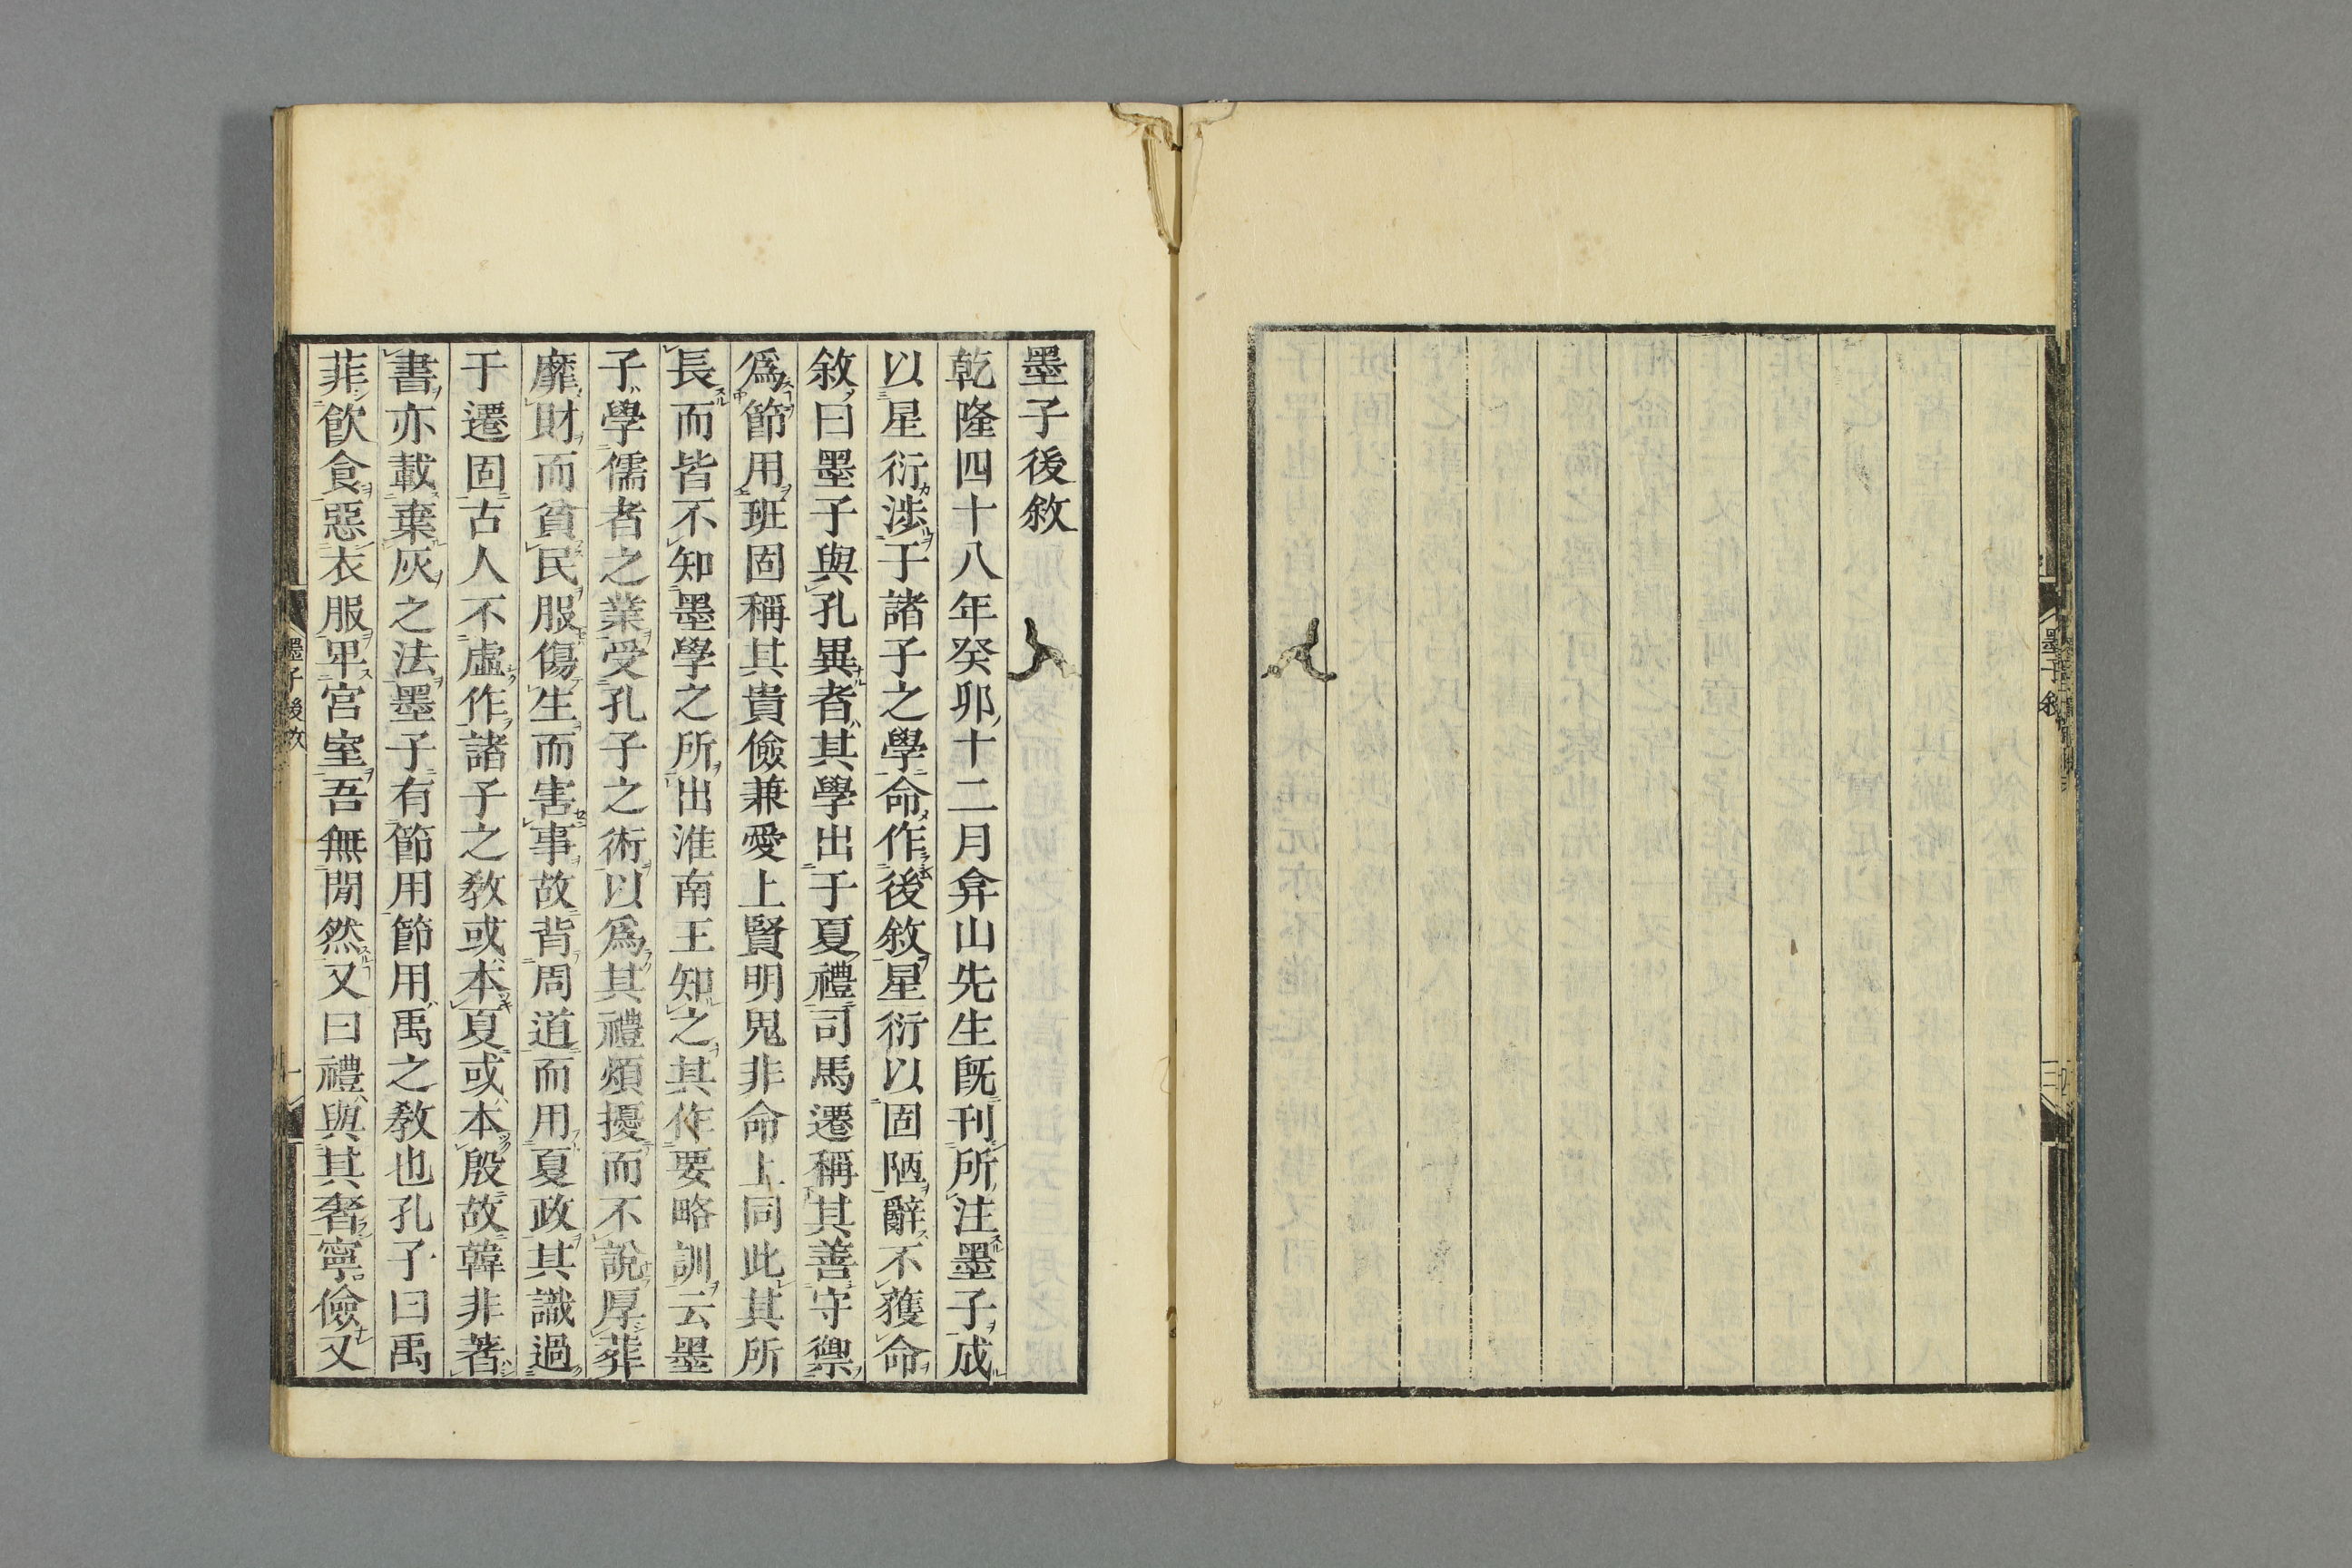 墨子敘
墨子後敘
乾隆四十八年癸卯十二月弇山先生旣刊所注墨子成
以星衍涉于諸子之學命作後敘星衍以固陋辭不獲命
敘曰墨子與孔異者其學出于夏禮司馬遷稱其善守禦
爲節用班固稱其貴儉兼愛上賢明鬼非命上同此其所
長而皆不知墨學之所出淮南王知之其作要略訓云墨
子學儒者之業受孔子之術以爲其禮煩擾而不說厚葬
靡財而貧民服傷生而害事故背周道而用夏政其識過
于遷固古人不虛作諸子之敎或本夏或本殷故韓非著
書亦載棄灰之法墨子有節用節用禹之敎也孔子曰禹
菲飮食惡衣服卑宮室吾無閒然又曰禮與其奢寧儉又
墨子後敘 一